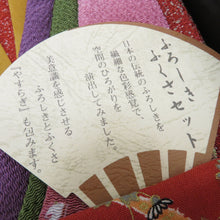 ふろしき
ふくさセット
日本の伝統のふろしきを
繊細な色彩感覚で
空間のひろがりを
演出してみました。
美意識を感じさせる
ふろしきとふくさ
「やすらぎ」も包みます。